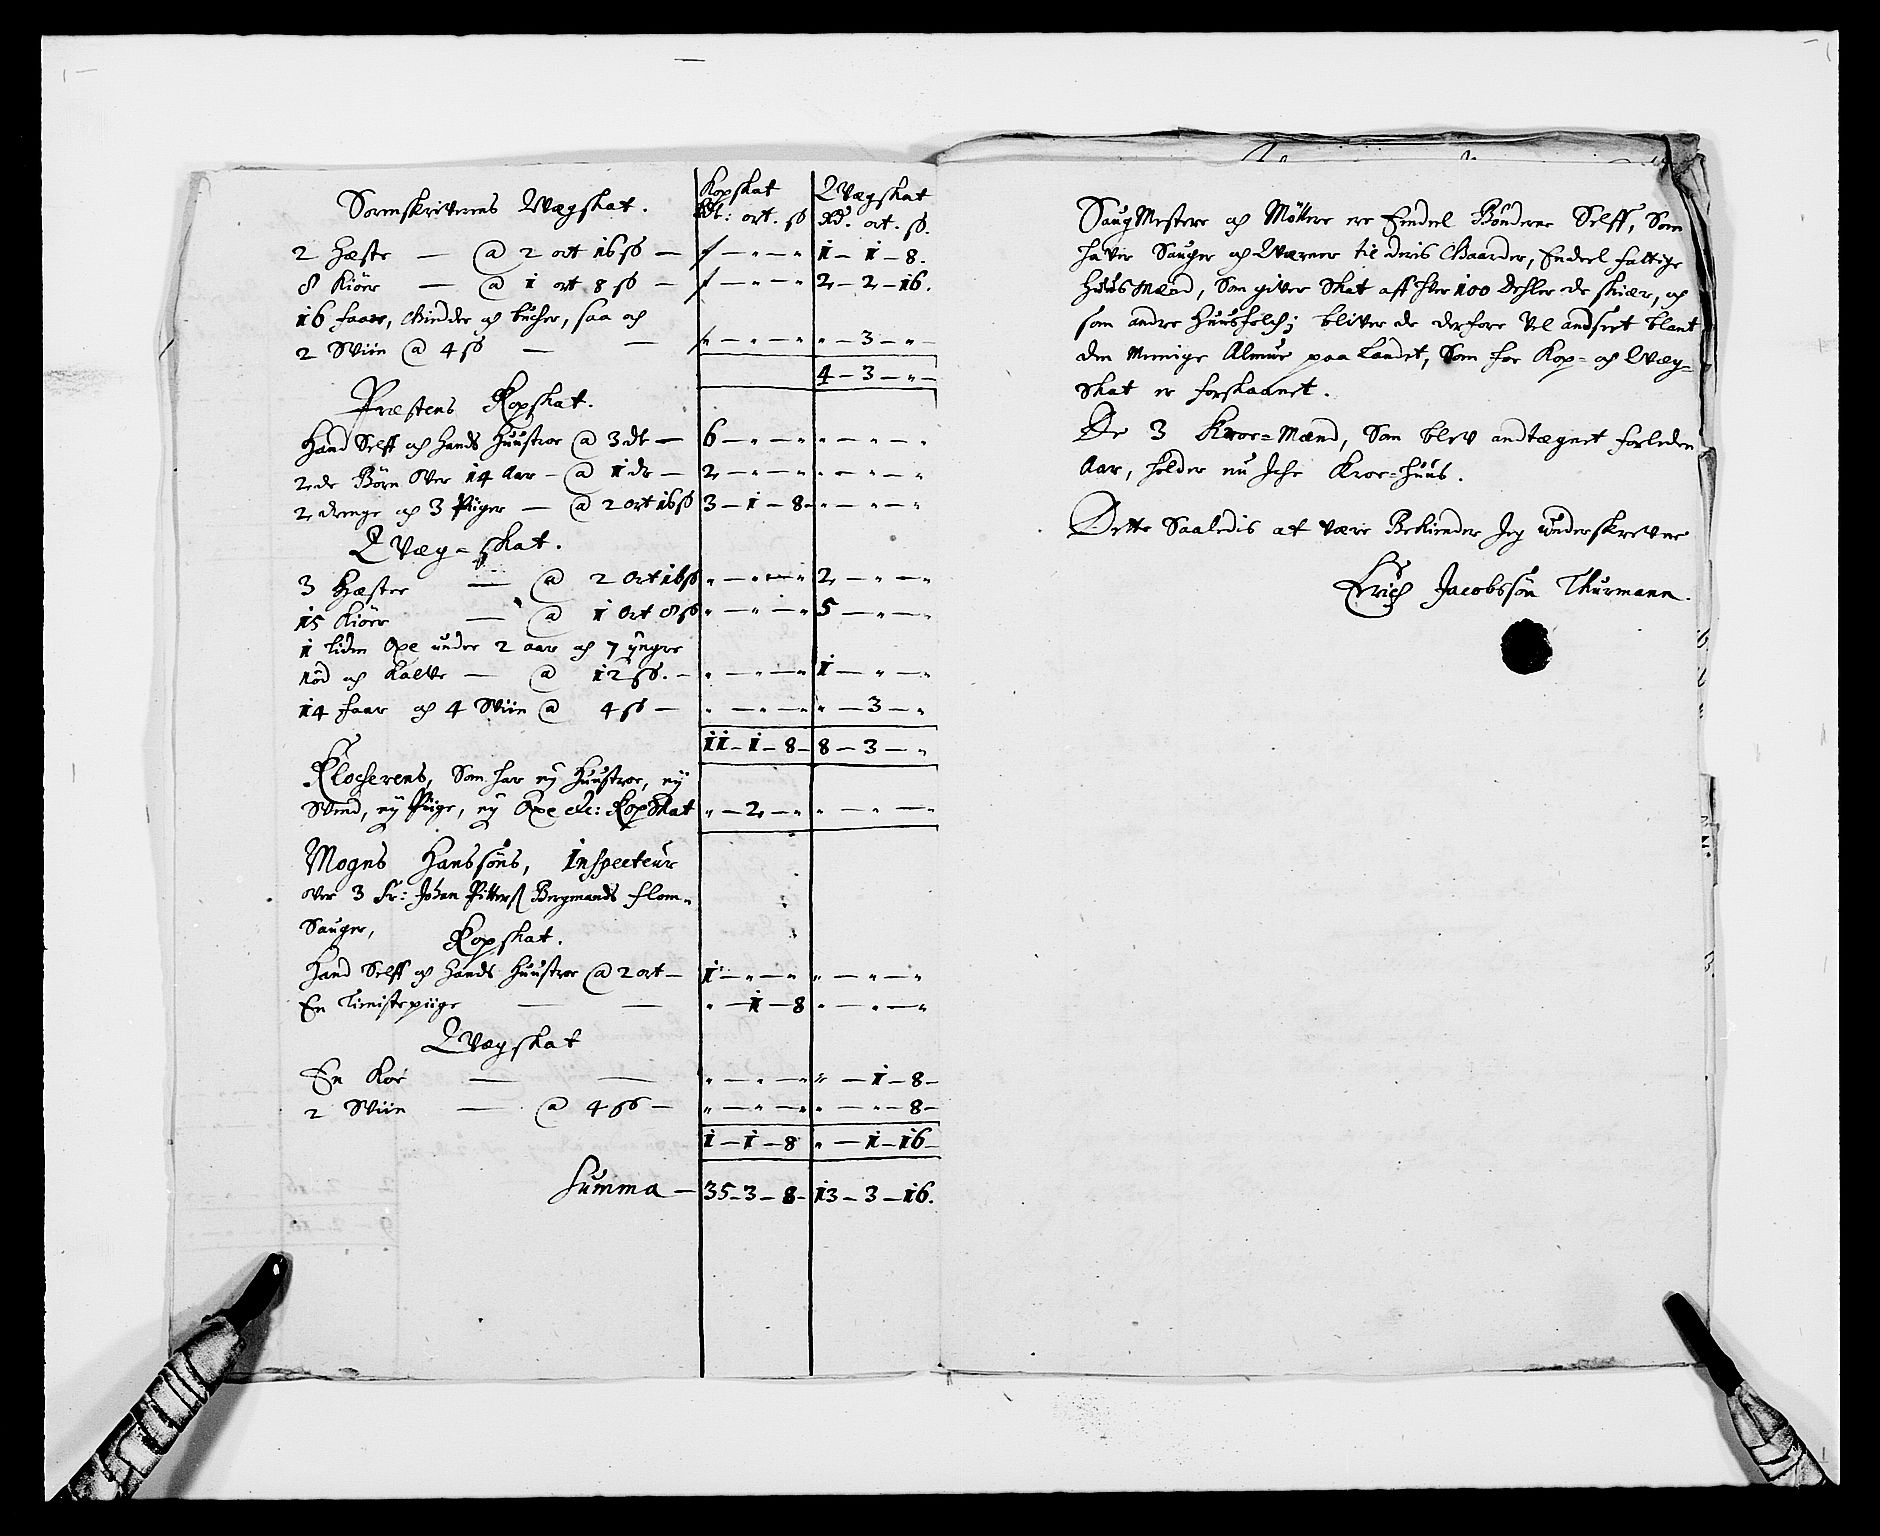 Kopskat Qvægskat
Sorenskriverens Qvægskat. Rdl: ort. ß Rd. ort. ß.
2 Hæste — @ 2 ort 16 ß — „ — „ — „ 1 — 1 — 8.
8 Kiöer — @ 1 ort 8 ß — „ — „ — „ 2 — 2 — 16.
16 faar, Giedder och bucher, saa och
2 Sviin @ 4 ß — — „ — „ — „ „ — 3 — „
4 — 3 — „
Præstens Kopskat.
Hand Selff och Hands Huustroe @ 3 dr — 6 — „ — „ „ — „ — „
2de Börn over 14 Aar — @ 1 dr — 2 — „ — „ „ — „ — „
2 drenge och 3 Piiger — @ 2 ort 16 ß 3 — 1 — 8 „ — „ — „
Qvæg-skat.
3 Hæster — @ 2 Ort 16 ß „ — „ — „ 2 — „ — „
15 Kiöer — @ 1 Ort 8 ß „ — „ — „ 5 — „ — „
1 liden Oxe under 2 aar och 7 yngre
nöd och Kalve — @ 12 ß. — „ — „ — „ 1 — „ — „
14 faar och 4 Sviin @ 4 ß — „ — „ — „ „ — 3 — „
11 — 1 — 8 8 — 3 — „
Klocherens, Som har ey Huustroe, ey
Svend, ey Piige, ey Oxe etc: Kopskat „ — 2 — „ „ — „ — „
Mogns Hanssöns, Inspecteur
over 3 Sr: Johan Pitterß Bergmands flom-
Sauger, Kopskat.
Hand Selff och Hands Huustroe @ 2 ort — 1 — „ — „ „ — „ — „
En Tienistepiige — — „ — 1 — 8 „ — „ — „
Qvægskat
En Koe — — „ — „ — „ „ — 1 — 8 —
2 Sviin — @ 4 ß — „ — „ — „ „ — „ — 8 —
1 — 1 — 8 „ — 1 — 16
Summa — 35 — 3 — 8 — 13 — 3 — 16.
SaugMestere och Möllere ere Eendeel Bönderne Selff, Som
haver Sauger och Qværner til deris Gaarder, Endeel fattige
HuusMænd, Som giver Skat aff hver 100 dehler de skiær, och
som andre Huusfolch; bliver de derfore vel andseet blant
den menige Almue paa Landet, Som for Kop- och Qvæg-
skat er forskaanet.
De 3 Kroe-Mænd, Som blev andtægnet forleden
Aar, holder nu Iche Kroe-huus.
Dette Saaledis at være Bekiender Jeg underskrevne
Erich Jacobssön Thurmann.